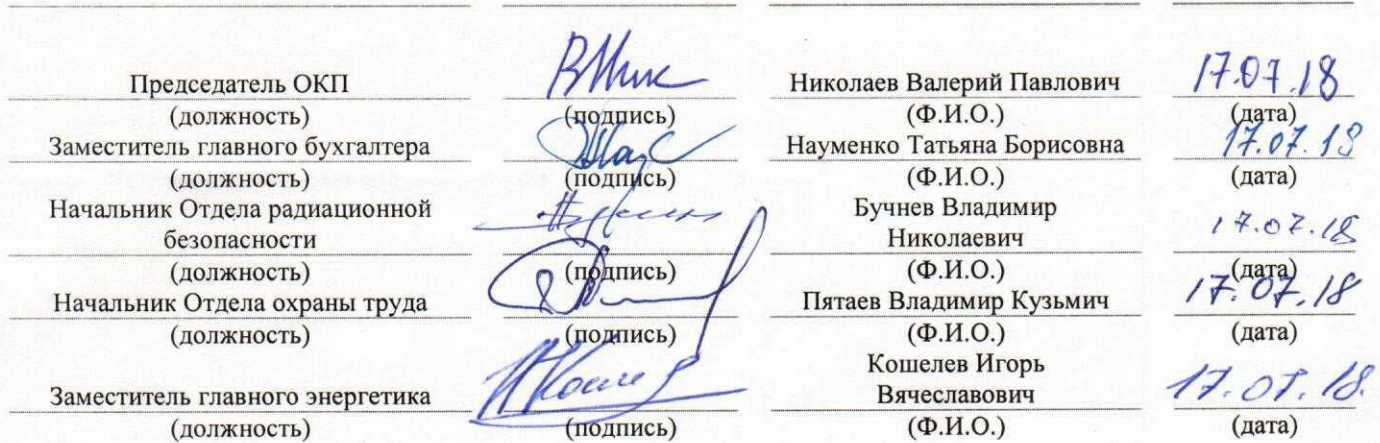 Председатель ОКП Николаев Валерий Павлович 17.07.18
(должность) (подпись) (Ф.И.О.) (дата)
Заместитель главного бухгалтера Науменко Татьяна Борисовна 17.07.18
(должность) (подпись) (Ф.И.О.) (дата)
Начальник Отдела радиационной Бучнев Владимир
безопасности Николаевич 17.07.18
(должность) (подпись) (Ф.И.О.) (дата)
Начальник Отдела охраны труда Пятаев Владимир Кузьмич 17.07.18
(должность) (подпись) (Ф.И.О.) (дата)
Кошелев Игорь
Заместитель главного энергетика Вячеславович 17.07.18.
(должность) (подпись) (Ф.И.О.) (дата)